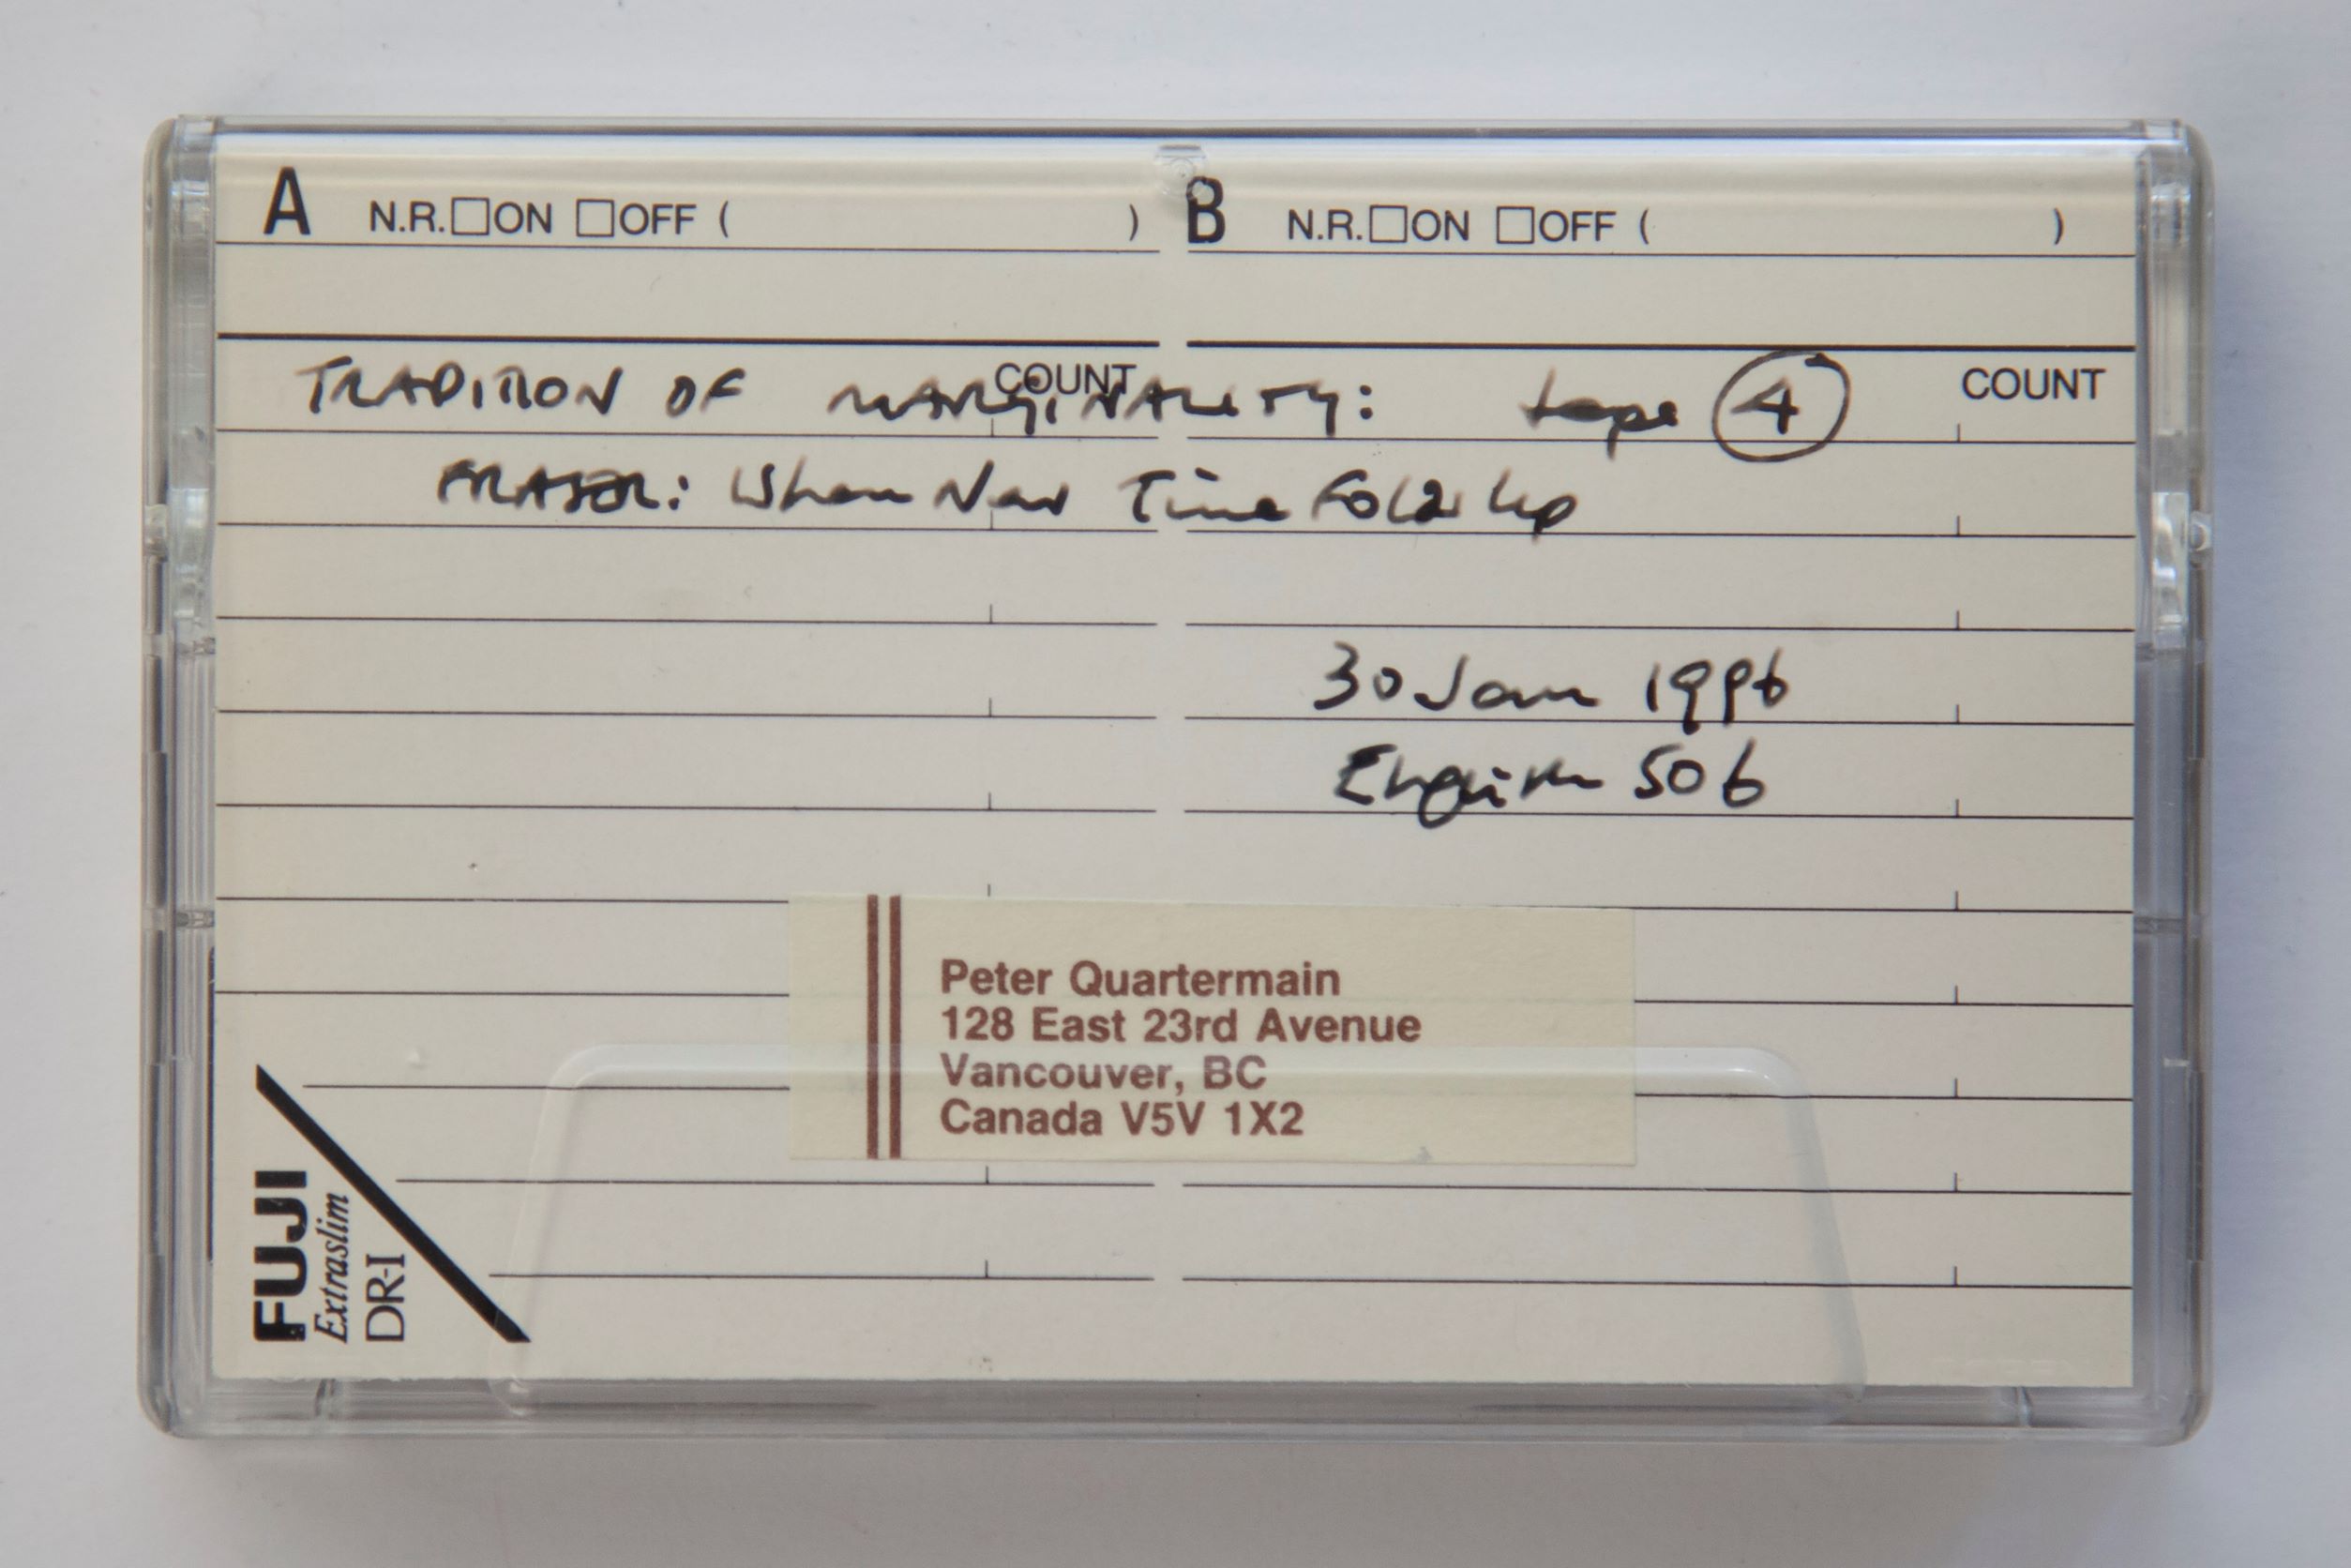 A N.R.□ON □OFF ( ) B N.R.□ON □OFF ( )
COUNT COUNT
TRADITION OF MARGINALITY: tape 4
FRASER: When New Time Folds Up
30 Jan 1996
English 506
Peter Quartermain
128 East 23rd Avenue
Vancouver, BC
Canada V5V 1X2
FUJI
Extraslim
DR-I